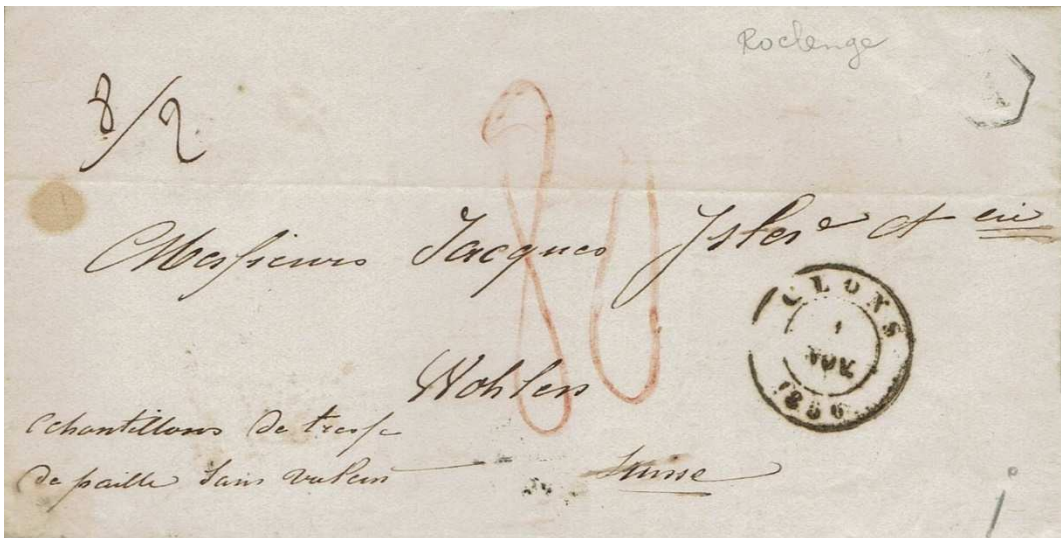 Roclenge
8/2
80
Messieurs Jacques Isler et cie
GLONS
1
NOV
1856
Wohlen
echantillons de tresse
de paille sans valeur
Suisse